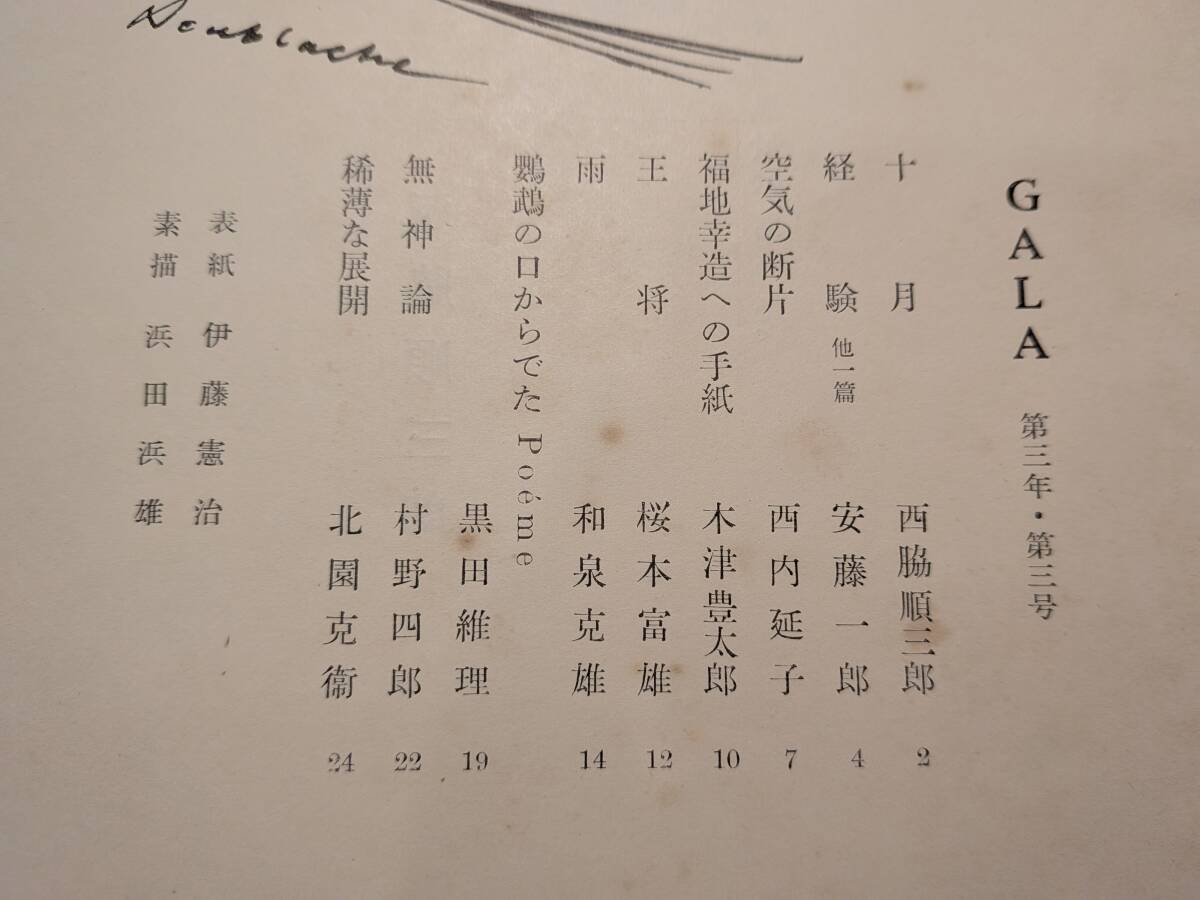 GALA 第三年・第三号
十月 西脇順三郎 2
経験 他一篇 安藤一郎 4
空気の断片 西内延子 7
福地幸造への手紙 木津豊太郎 10
王将 桜本富雄 12
雨 和泉克雄 14
鸚鵡の口からでた Poéme
黒田維理 19
無神論 村野四郎 22
稀薄な展開 北園克衛 24
表紙 伊藤憲治
素描 浜田浜雄